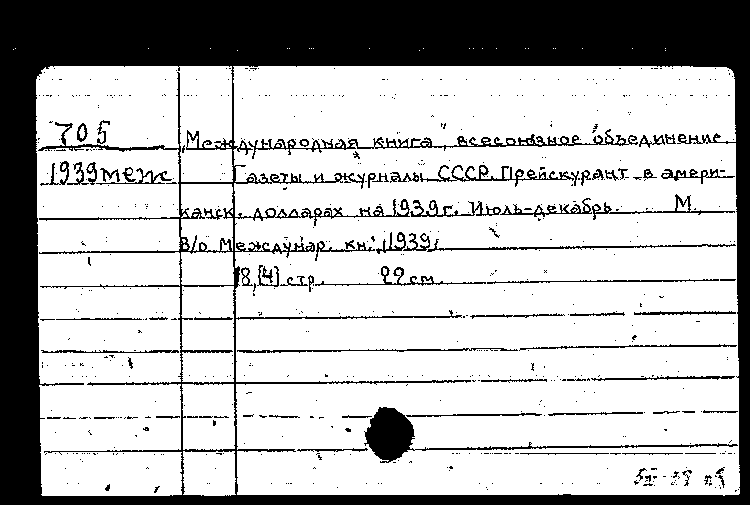 705
1939меж
„Международная книга", всесоюзное объединение.
Газеты и журналы СССР. Прейскурант в амери-
канск. долларах на 1939 г. Июль-декабрь. М.,
В/о „Междунар. кн.", 1939.
18,[4] стр. 22 см.